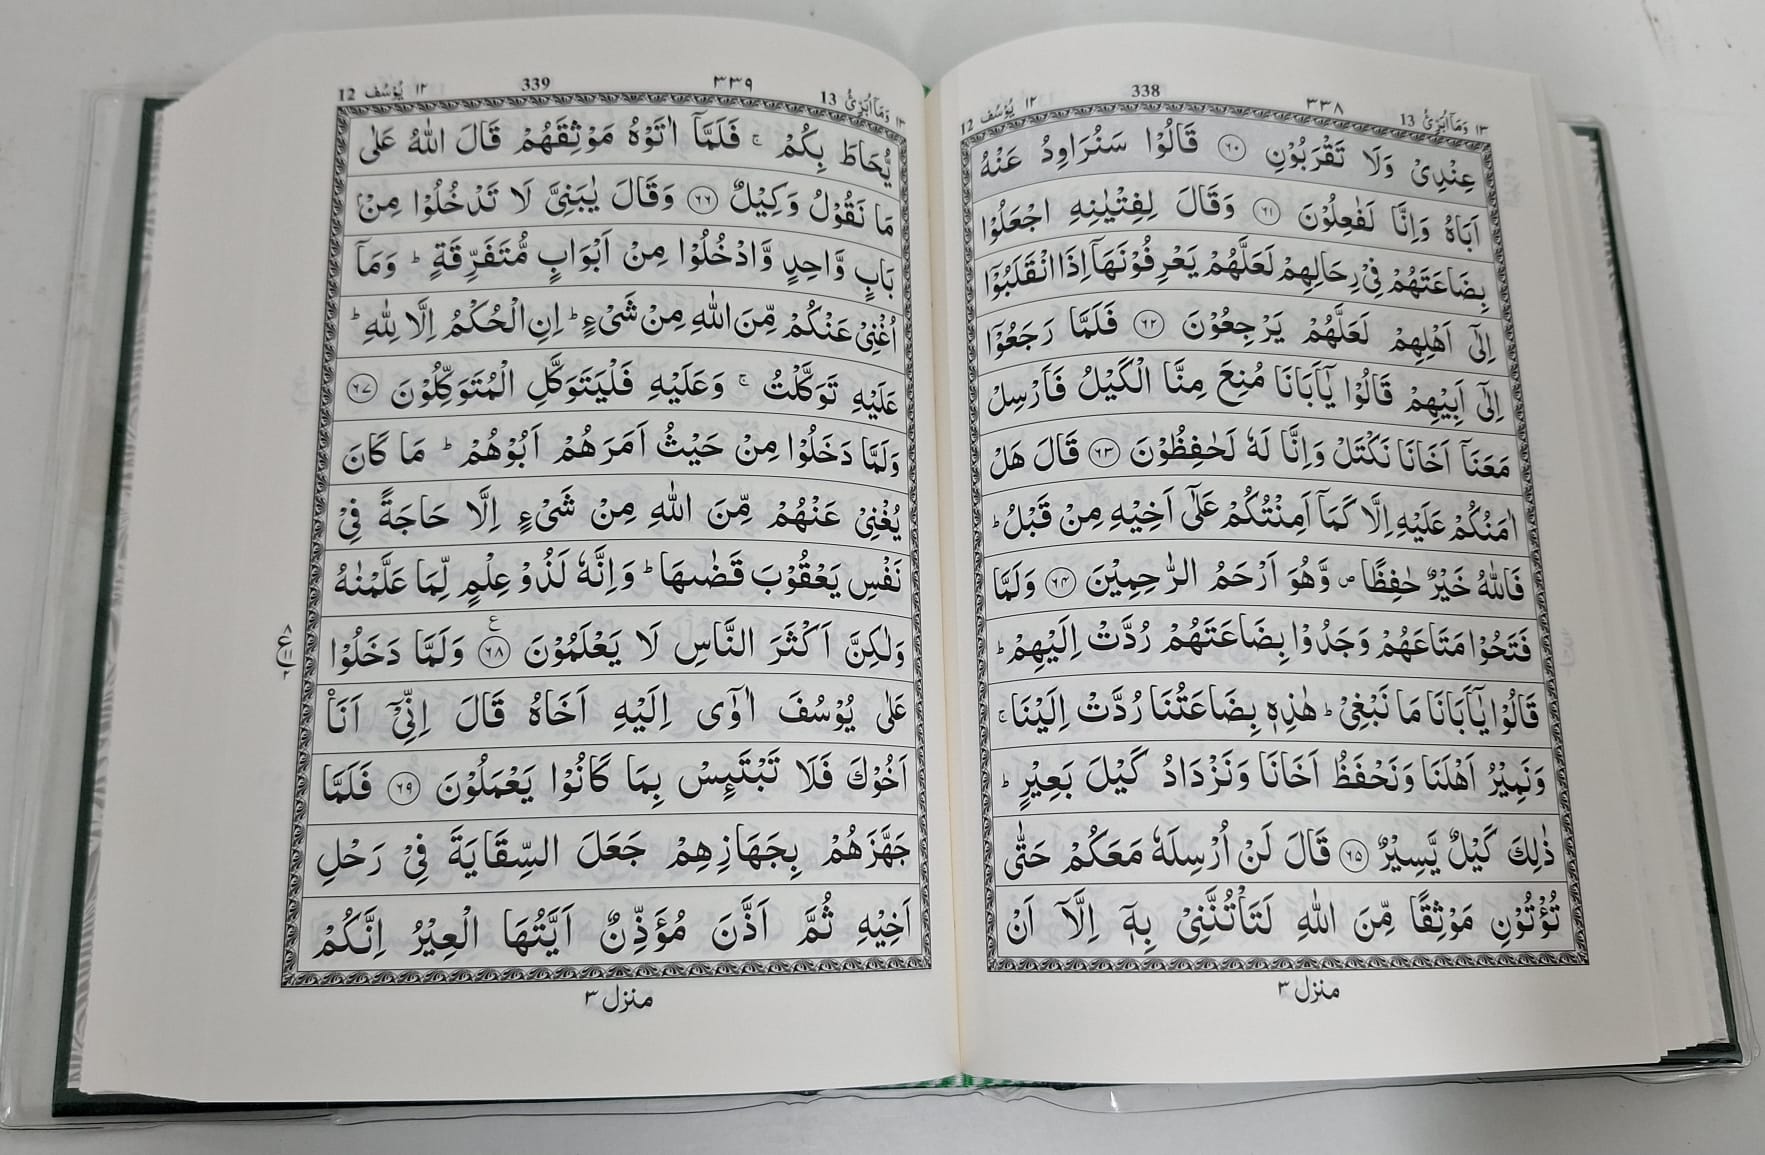 ١٣ وَمَآاُبَرِّئُ 13
٣٣٨
338
١٢ يُوْسُف 12
عِنْدِىْ وَلَا تَقْرَبُوْنِ ۝٦٠ قَالُوْا سَنُرَاوِدُ عَنْهُ
اَبَاهُ وَاِنَّا لَفٰعِلُوْنَ ۝٦١ وَقَالَ لِفِتْيٰنِهِ اجْعَلُوْا
بِضَاعَتَهُمْ فِىْ رِحَالِهِمْ لَعَلَّهُمْ يَعْرِفُوْنَهَآ اِذَا انْقَلَبُوْٓا
اِلٰٓى اَهْلِهِمْ لَعَلَّهُمْ يَرْجِعُوْنَ ۝٦٢ فَلَمَّا رَجَعُوْٓا
اِلٰٓى اَبِيْهِمْ قَالُوْا يٰٓاَبَانَا مُنِعَ مِنَّا الْكَيْلُ فَاَرْسِلْ
مَعَنَآ اَخَانَا نَكْتَلْ وَاِنَّا لَهٗ لَحٰفِظُوْنَ ۝٦٣ قَالَ هَلْ
اٰمَنُكُمْ عَلَيْهِ اِلَّا كَمَآ اَمِنْتُكُمْ عَلٰٓى اَخِيْهِ مِنْ قَبْلُ ؕ
فَاللّٰهُ خَيْرٌ حٰفِظًا ۪ وَّهُوَ اَرْحَمُ الرّٰحِمِيْنَ ۝٦٤ وَلَمَّا
فَتَحُوْا مَتَاعَهُمْ وَجَدُوْا بِضَاعَتَهُمْ رُدَّتْ اِلَيْهِمْ ؕ
قَالُوْا يٰٓاَبَانَا مَا نَبْغِىْ ؕ هٰذِهٖ بِضَاعَتُنَا رُدَّتْ اِلَيْنَا ۚ
وَنَمِيْرُ اَهْلَنَا وَنَحْفَظُ اَخَانَا وَنَزْدَادُ كَيْلَ بَعِيْرٍ ؕ
ذٰلِكَ كَيْلٌ يَّسِيْرٌ ۝٦٥ قَالَ لَنْ اُرْسِلَهٗ مَعَكُمْ حَتّٰى
تُؤْتُوْنِ مَوْثِقًا مِّنَ اللّٰهِ لَتَاْتُنَّنِىْ بِهٖٓ اِلَّآ اَنْ
منزل ٣
١٣ وَمَآاُبَرِّئُ 13
٣٣٩
339
١٢ يُوْسُف 12
يُّحَاطَ بِكُمْ ۚ فَلَمَّآ اٰتَوْهُ مَوْثِقَهُمْ قَالَ اللّٰهُ عَلٰى
مَا نَقُوْلُ وَكِيْلٌ ۝٦٦ وَقَالَ يٰبَنِىَّ لَا تَدْخُلُوْا مِنْۢ
بَابٍ وَّاحِدٍ وَّادْخُلُوْا مِنْ اَبْوَابٍ مُّتَفَرِّقَةٍ ؕ وَمَآ
اُغْنِىْ عَنْكُمْ مِّنَ اللّٰهِ مِنْ شَىْءٍ ؕ اِنِ الْحُكْمُ اِلَّا لِلّٰهِ ؕ
عَلَيْهِ تَوَكَّلْتُ ۚ وَعَلَيْهِ فَلْيَتَوَكَّلِ الْمُتَوَكِّلُوْنَ ۝٦٧
وَلَمَّا دَخَلُوْا مِنْ حَيْثُ اَمَرَهُمْ اَبُوْهُمْ ؕ مَا كَانَ
يُغْنِىْ عَنْهُمْ مِّنَ اللّٰهِ مِنْ شَىْءٍ اِلَّا حَاجَةً فِىْ
نَفْسِ يَعْقُوْبَ قَضٰىهَا ؕ وَاِنَّهٗ لَذُوْ عِلْمٍ لِّمَا عَلَّمْنٰهُ
وَلٰكِنَّ اَكْثَرَ النَّاسِ لَا يَعْلَمُوْنَ ۝٦٨ ع وَلَمَّا دَخَلُوْا
عَلٰى يُوْسُفَ اٰوٰٓى اِلَيْهِ اَخَاهُ قَالَ اِنِّىْٓ اَنَا۠
اَخُوْكَ فَلَا تَبْتَئِسْ بِمَا كَانُوْا يَعْمَلُوْنَ ۝٦٩ فَلَمَّا
جَهَّزَهُمْ بِجَهَازِهِمْ جَعَلَ السِّقَايَةَ فِىْ رَحْلِ
اَخِيْهِ ثُمَّ اَذَّنَ مُؤَذِّنٌ اَيَّتُهَا الْعِيْرُ اِنَّكُمْ
منزل ٣